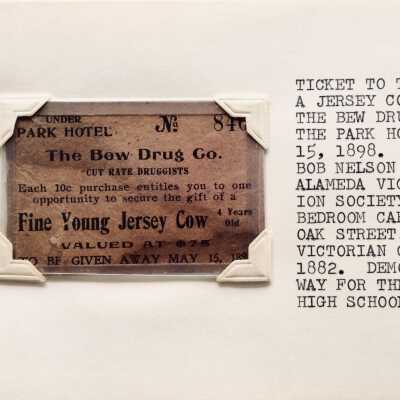 UNDER
PARK HOTEL
No 846
The Bew Drug Co.
CUT RATE DRUGGISTS
Each 10c purchase entitles you to one
opportunity to secure the gift of a
Fine Young Jersey Cow 4 Years Old
VALUED AT $75
TO BE GIVEN AWAY MAY 15, 189
TICKET TO T
A JERSEY CO
THE BEW DRU
THE PARK HO
15, 1898.
BOB NELSON
ALAMEDA VIC
ION SOCIETY
BEDROOM CAB
OAK STREET
VICTORIAN C
1882. DEMO
WAY FOR THE
HIGH SCHOOL